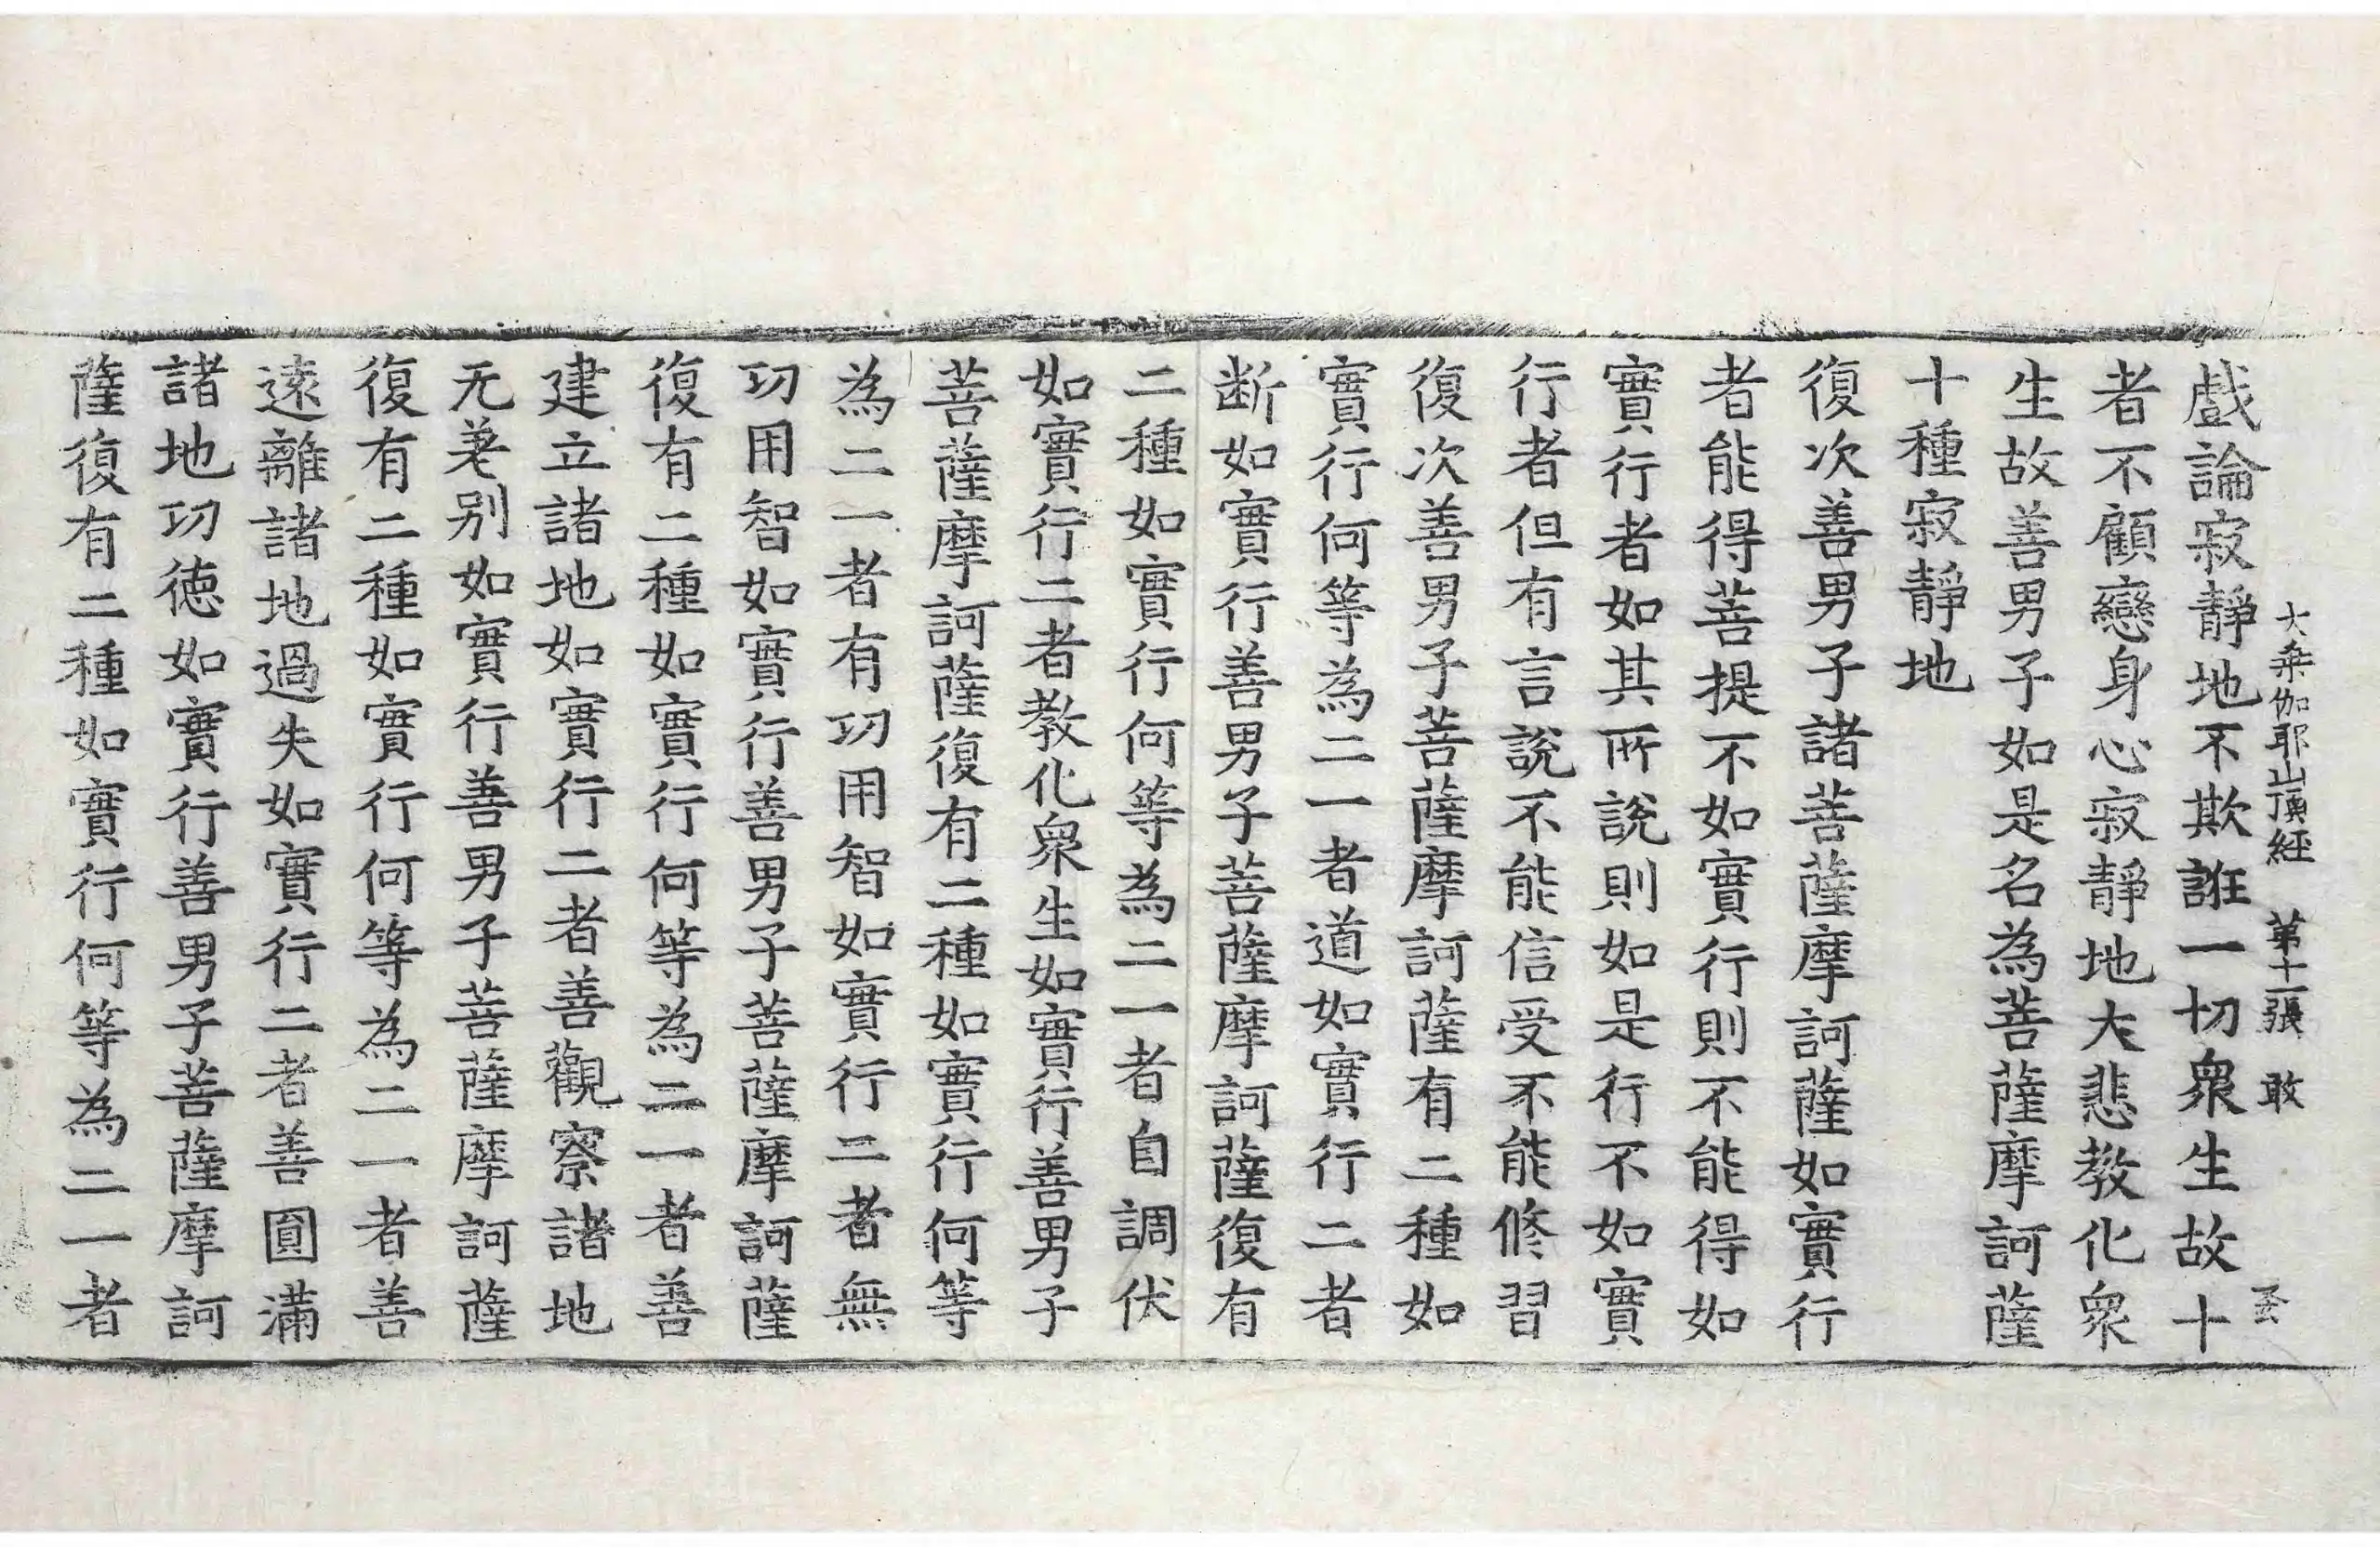 大乗伽耶山頂経 第十一張 敢
戲論寂靜地不欺誑一切衆生故十
者不顧戀身心寂靜地大悲教化衆
生故善男子如是名為菩薩摩訶薩
十種寂靜地
復次善男子諸菩薩摩訶薩如實行
者能得菩提不如實行則不能得如
實行者如其所說則如是行不如實
行者但有言說不能信受不能修習
復次善男子菩薩摩訶薩有二種如
實行何等為二一者道如實行二者
断如實行善男子菩薩摩訶薩復有
二種如實行何等為二一者自調伏
如實行二者教化衆生如實行善男子
菩薩摩訶薩復有二種如實行何等
為二一者有功用智如實行二者無
功用智如實行善男子菩薩摩訶薩
復有二種如實行何等為二一者善
建立諸地如實行二者善觀察諸地
无差别如實行善男子菩薩摩訶薩
復有二種如實行何等為二一者善
遠離諸地過失如實行二者善圓滿
諸地功徳如實行善男子菩薩摩訶
薩復有二種如實行何等為二一者